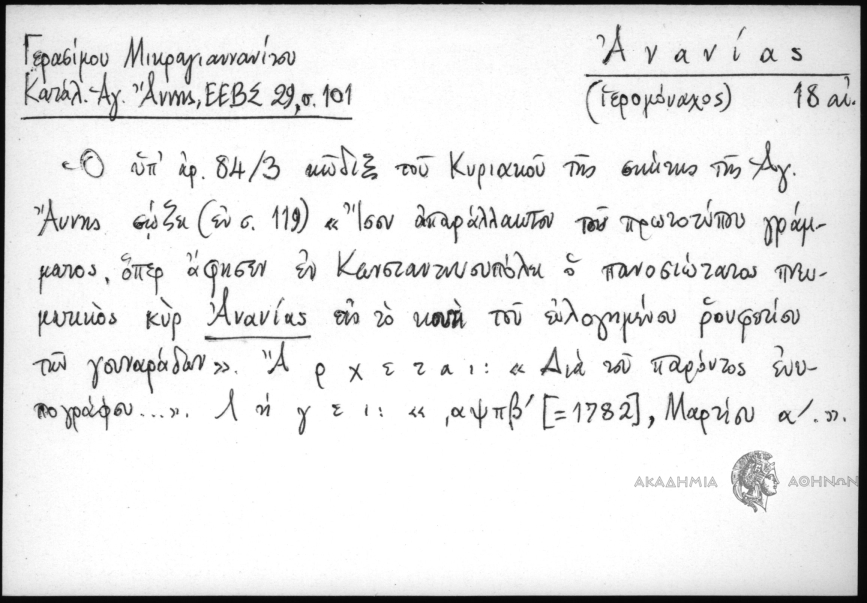 Γερασίμου Μικραγιαννανίτου
Κατάλ. Ἁγ. Ἄννης, ΕΕΒΣ 29, σ. 101
Ἀνανίας
(Ἱερομόναχος) 18 αἰ.
Ὁ ὑπ' ἀρ. 84/3 κῶδιξ τοῦ Κυριακοῦ τῆς σκήτης τῆς Ἁγ.
Ἄννης σῴζει (ἐν σ. 119) «Ἴσον ἀπαράλλακτον τοῦ πρωτοτύπου γράμ-
ματος, ὅπερ ἀφῆσεν ἐν Κωνσταντινουπόλει ὁ πανοσιώτατος πνευ-
ματικὸς κὺρ Ἀνανίας εἰς τὸ κοινὸν τοῦ εὐλογημένου ῥουφετίου
τῶν γουναράδων». Ἄρχεται: «Διὰ τοῦ παρόντος ἐνυ-
πογράφου...». Λήγει: «͵αψπβ' [=1782], Μαρτίου α'.».
ΑΚΑΔΗΜΙΑ ΑΘΗΝΩΝ